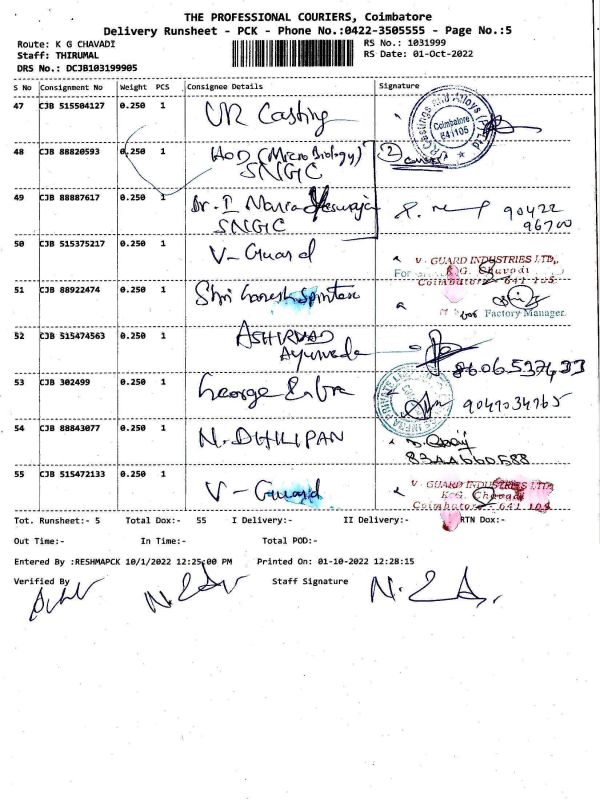 THE PROFESSIONAL COURIERS, Coimbatore
Delivery Runsheet - PCK - Phone No.:0422-3505555 - Page No.:5
Route: K G CHAVADI
RS No.: 1031999
Staff: THIRUMAL
RS Date: 01-Oct-2022
DRS No.: DCJB103199905
S No Consignment No Weight PCS Consignee Details Signature
47 CJB 515504127 0.250 1 UR Casting
Castings and Alloys (P) Ltd
Coimbatore
641105
48 CJB 88820593 0.250 1 HOD (Micro Biology)
SNGC
2
49 CJB 88887617 0.250 1 Dr. I
SNGC
90422
96700
50 CJB 515375217 0.250 1 V-Guard
V-GUARD INDUSTRIES LTD.,
For K.G. Chavadi
Coimbatore - 641 105
51 CJB 88922474 0.250 1 Shri Ganesh Spintex
Factory Manager
52 CJB 515474563 0.250 1 ASHIRVAD
Ayurveda
8606537433
53 CJB 302499 0.250 1 George Infra
9047034765
54 CJB 88843077 0.250 1 N. DHILIPAN
55 CJB 515472133 0.250 1 V-Guard
V-GUARD INDUSTRIES LTD
K.G. Chavadi
Coimbatore - 641 105
Tot. Runsheet:- 5 Total Dox:- 55 I Delivery:- II Delivery:- RTN Dox:-
Out Time:- In Time:- Total POD:-
Entered By :RESHMAPCK 10/1/2022 12:25:00 PM Printed On: 01-10-2022 12:28:15
Verified By Staff Signature